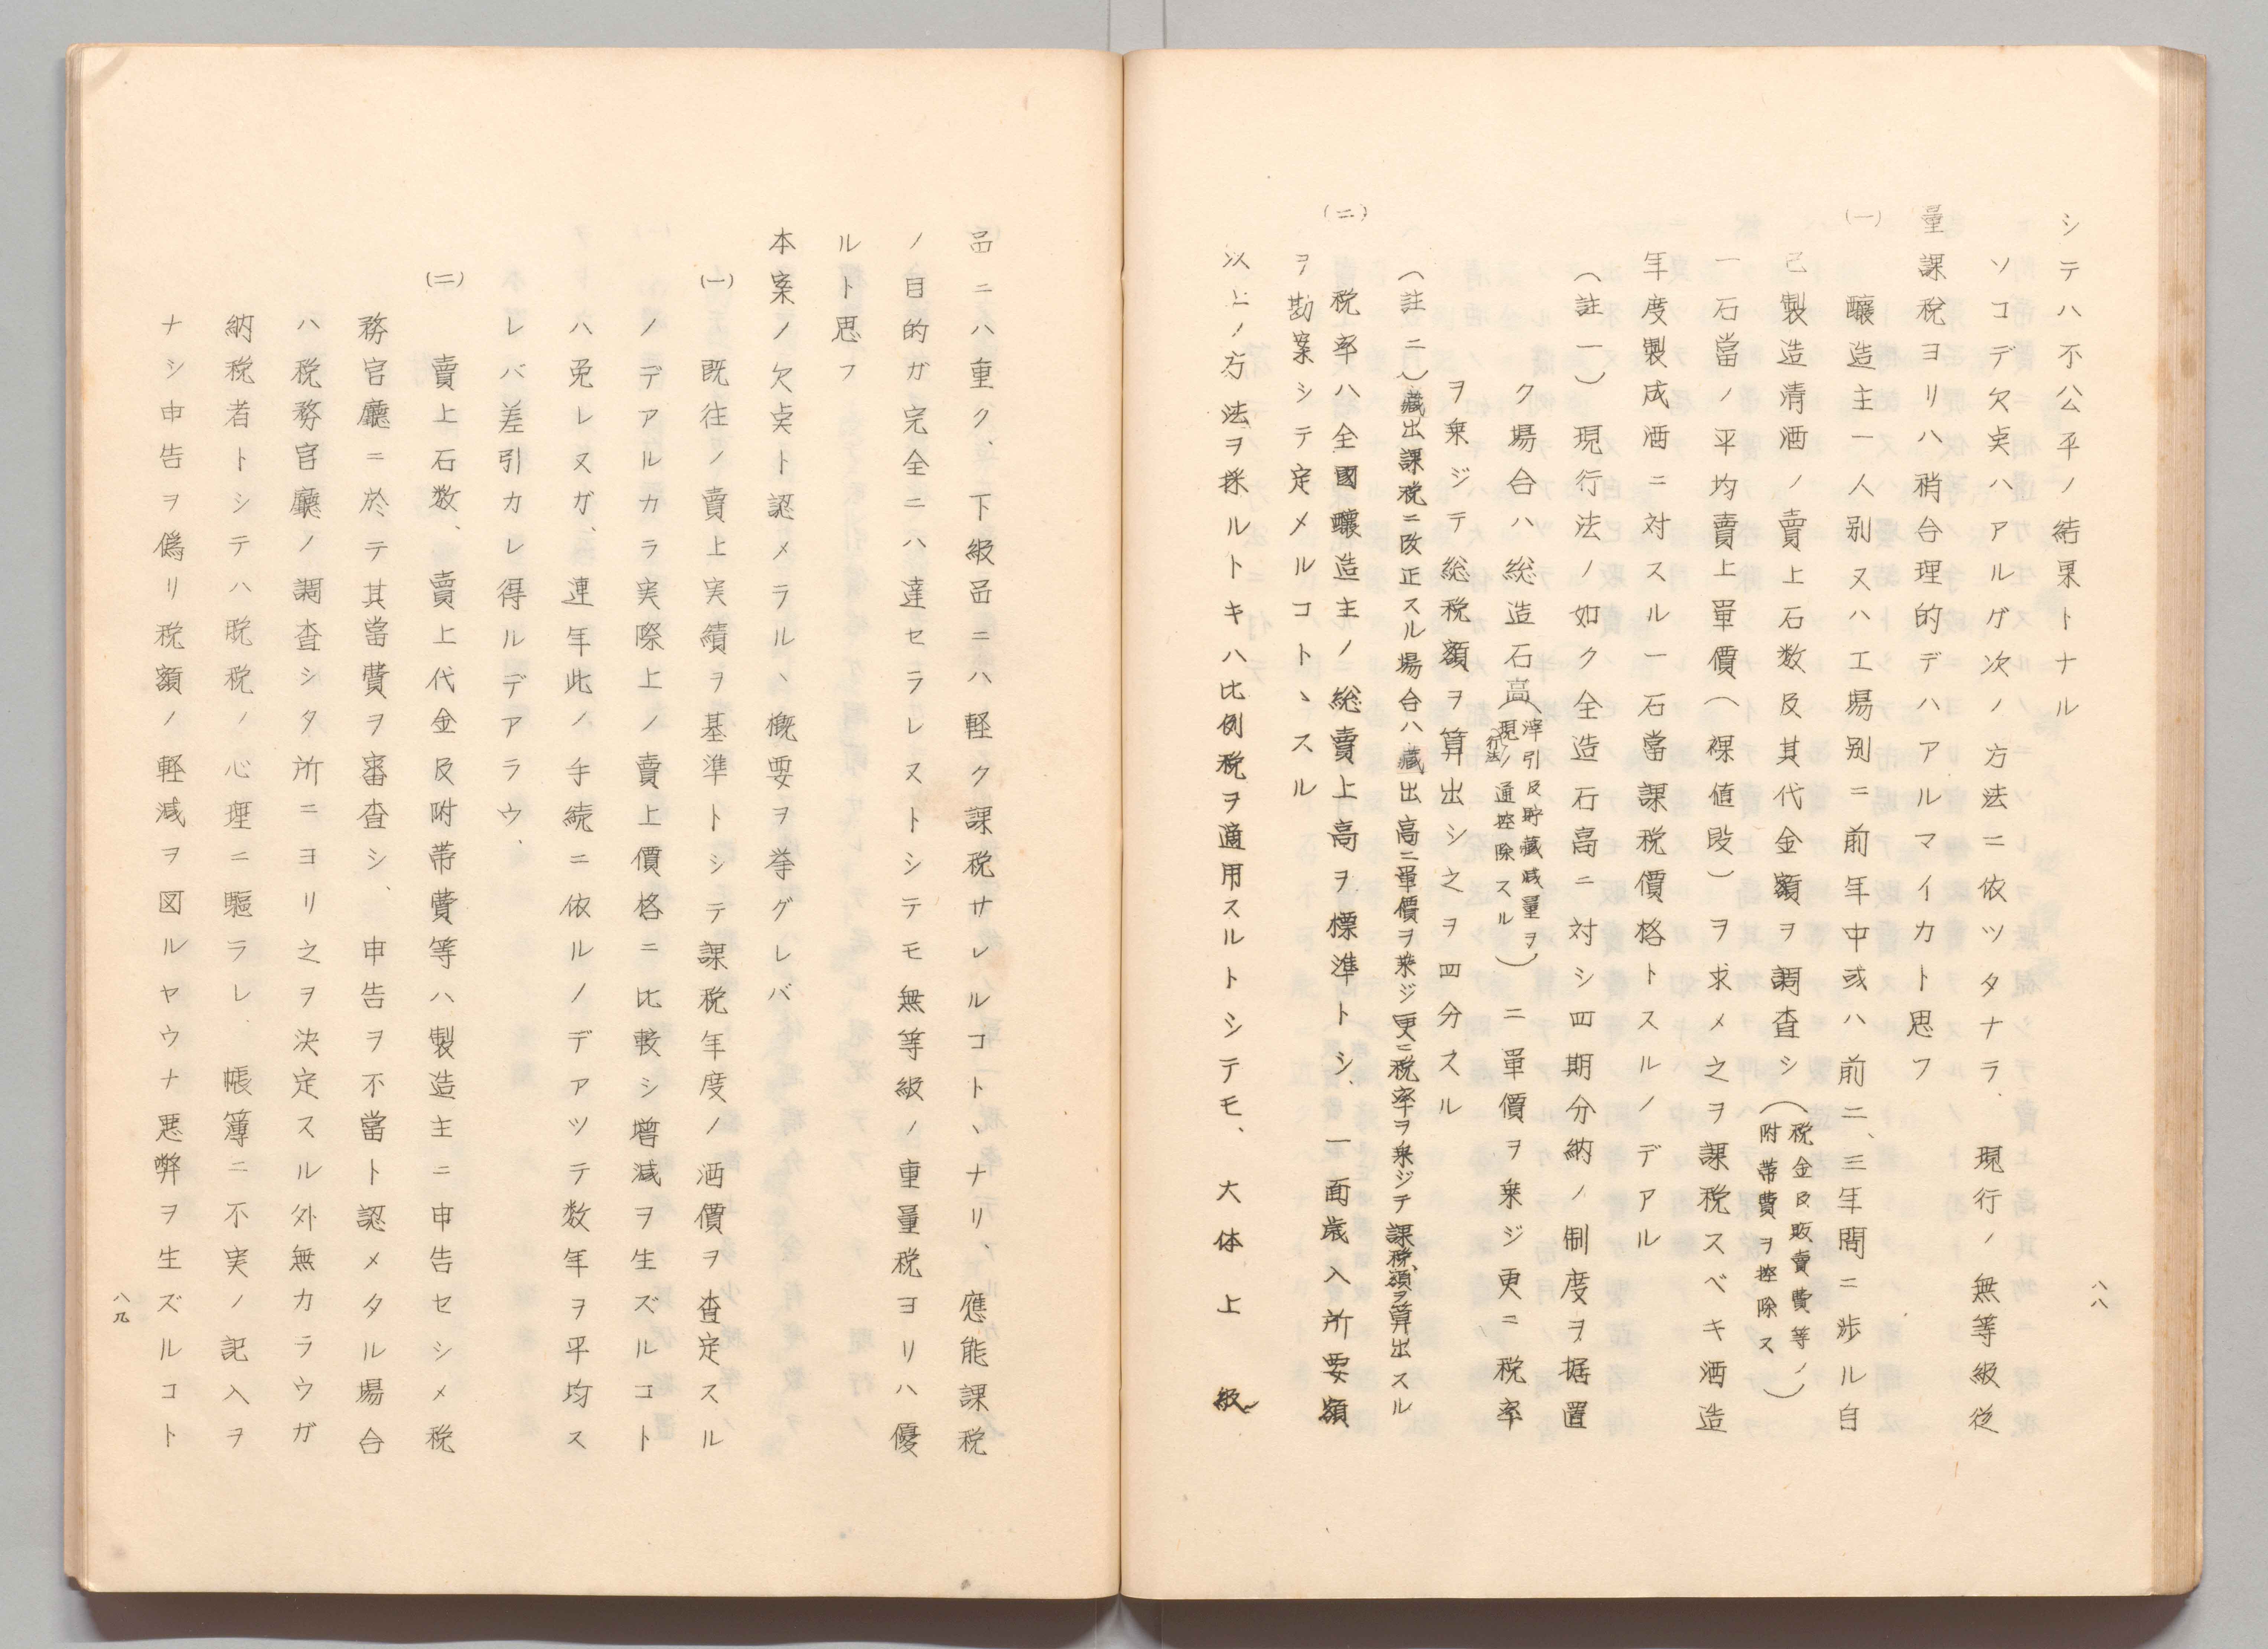 シテハ不公平ノ結果トナル
ソコデ欠点ハアルガ次ノ方法ニ依ツタナラ、現行ノ無等級従
量課税ヨリハ稍合理的デハアルマイカト思フ
(一) 醸造主一人別又ハ工場別ニ前年中或ハ前二、三年間ニ渉ル自
己製造清酒ノ賣上石数及其代金額ヲ調査シ(税金及販賣費等ノ附帯費ヲ控除ス)
一石當ノ平均賣上單價(裸値段)ヲ求メ之ヲ課税スベキ酒造
年度製成酒ニ対スル一石當課税價格トスルノデアル
(註一) 現行法ノ如ク全造石高ニ対シ四期分納ノ制度ヲ据置
ク場合ハ総造石高(滓引及貯蔵減量ヲ現行法ノ通控除スル)ニ單價ヲ乗ジ更ニ税率
ヲ乗ジテ総税額ヲ算出シ之ヲ四分スル
(註二)蔵出課税ニ改正スル場合ハ蔵出高ニ單價ヲ乗ジ更ニ税率ヲ乗ジテ課税額ヲ算出スル
(二) 税率ハ全國醸造主ノ総賣上高ヲ標準トシ、一面歳入所要額
ヲ勘案シテ定メルコトヽスル
以上ノ方法ヲ採ルトキハ比例税ヲ適用スルトシテモ、大体上級
八八
品ニハ重ク、下級品ニハ軽ク課税サレルコトヽナリ、應能課税
ノ目的ガ完全ニハ達セラレヌトシテモ無等級ノ重量税ヨリハ優
ルト思フ
本案ノ欠点ト認メラルヽ概要ヲ挙グレバ
(一) 既往ノ賣上実績ヲ基準トシテ課税年度ノ酒價ヲ査定スル
ノデアルカラ実際上ノ賣上價格ニ比較シ増減ヲ生ズルコト
ハ免レヌガ、連年此ノ手続ニ依ルノデアツテ数年ヲ平均ス
レバ差引カレ得ルデアラウ、
(二) 賣上石数、賣上代金及附帯費等ハ製造主ニ申告セシメ税
務官廳ニ於テ其當費ヲ審査シ、申告ヲ不當ト認メタル場合
ハ税務官廳ノ調査シタ所ニヨリ之ヲ決定スル外無カラウガ
納税者トシテハ脱税ノ心理ニ驅ラレ、帳簿ニ不実ノ記入ヲ
ナシ申告ヲ偽リ税額ノ軽減ヲ図ルヤウナ悪弊ヲ生ズルコト
八九